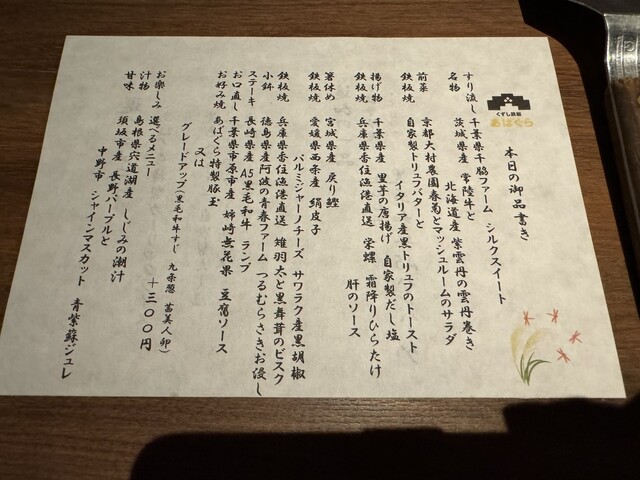 くずし鉄板
あばぐら
本日の御品書き
すり流し 千葉県千脇ファーム シルクスイート
名物 茨城県産 常陸牛と
北海道産 紫雲丹の雲丹巻き
前菜 京都大村農園春菊とマッシュルームのサラダ
鉄板焼 自家製トリュフバターと
イタリア産黒トリュフのトースト
揚げ物 千葉県産 里芋の唐揚げ 自家製だし塩
鉄板焼 兵庫県香住漁港直送 栄螺 霜降りひらたけ
肝のソース
箸休め 宮城県産 戻り鰹
鉄板焼 愛媛県西条産 絹皮子
パルミジャーノチーズ サワラク産黒胡椒
鉄板焼 兵庫県香住漁港直送 雄羽太と黒舞茸のビスク
小鉢 徳島県産阿波の青春ファーム つるむらさきお浸し
ステーキ 長崎県産 A5黒毛和牛 ランプ
お口直し 千葉県市原市産 姉崎無花果 豆腐ソース
お好み焼 あばぐら特製豚玉
又は
グレードアップ(黒毛和牛すじ 九条葱 蒟美人卵)
+三〇〇円
お楽しみ 選べるメニュー
汁物 島根県宍道湖産 しじみの潮汁
甘味 須坂市産 長野パープルと
中野市 シャインマスカット 青紫蘇ジュレ